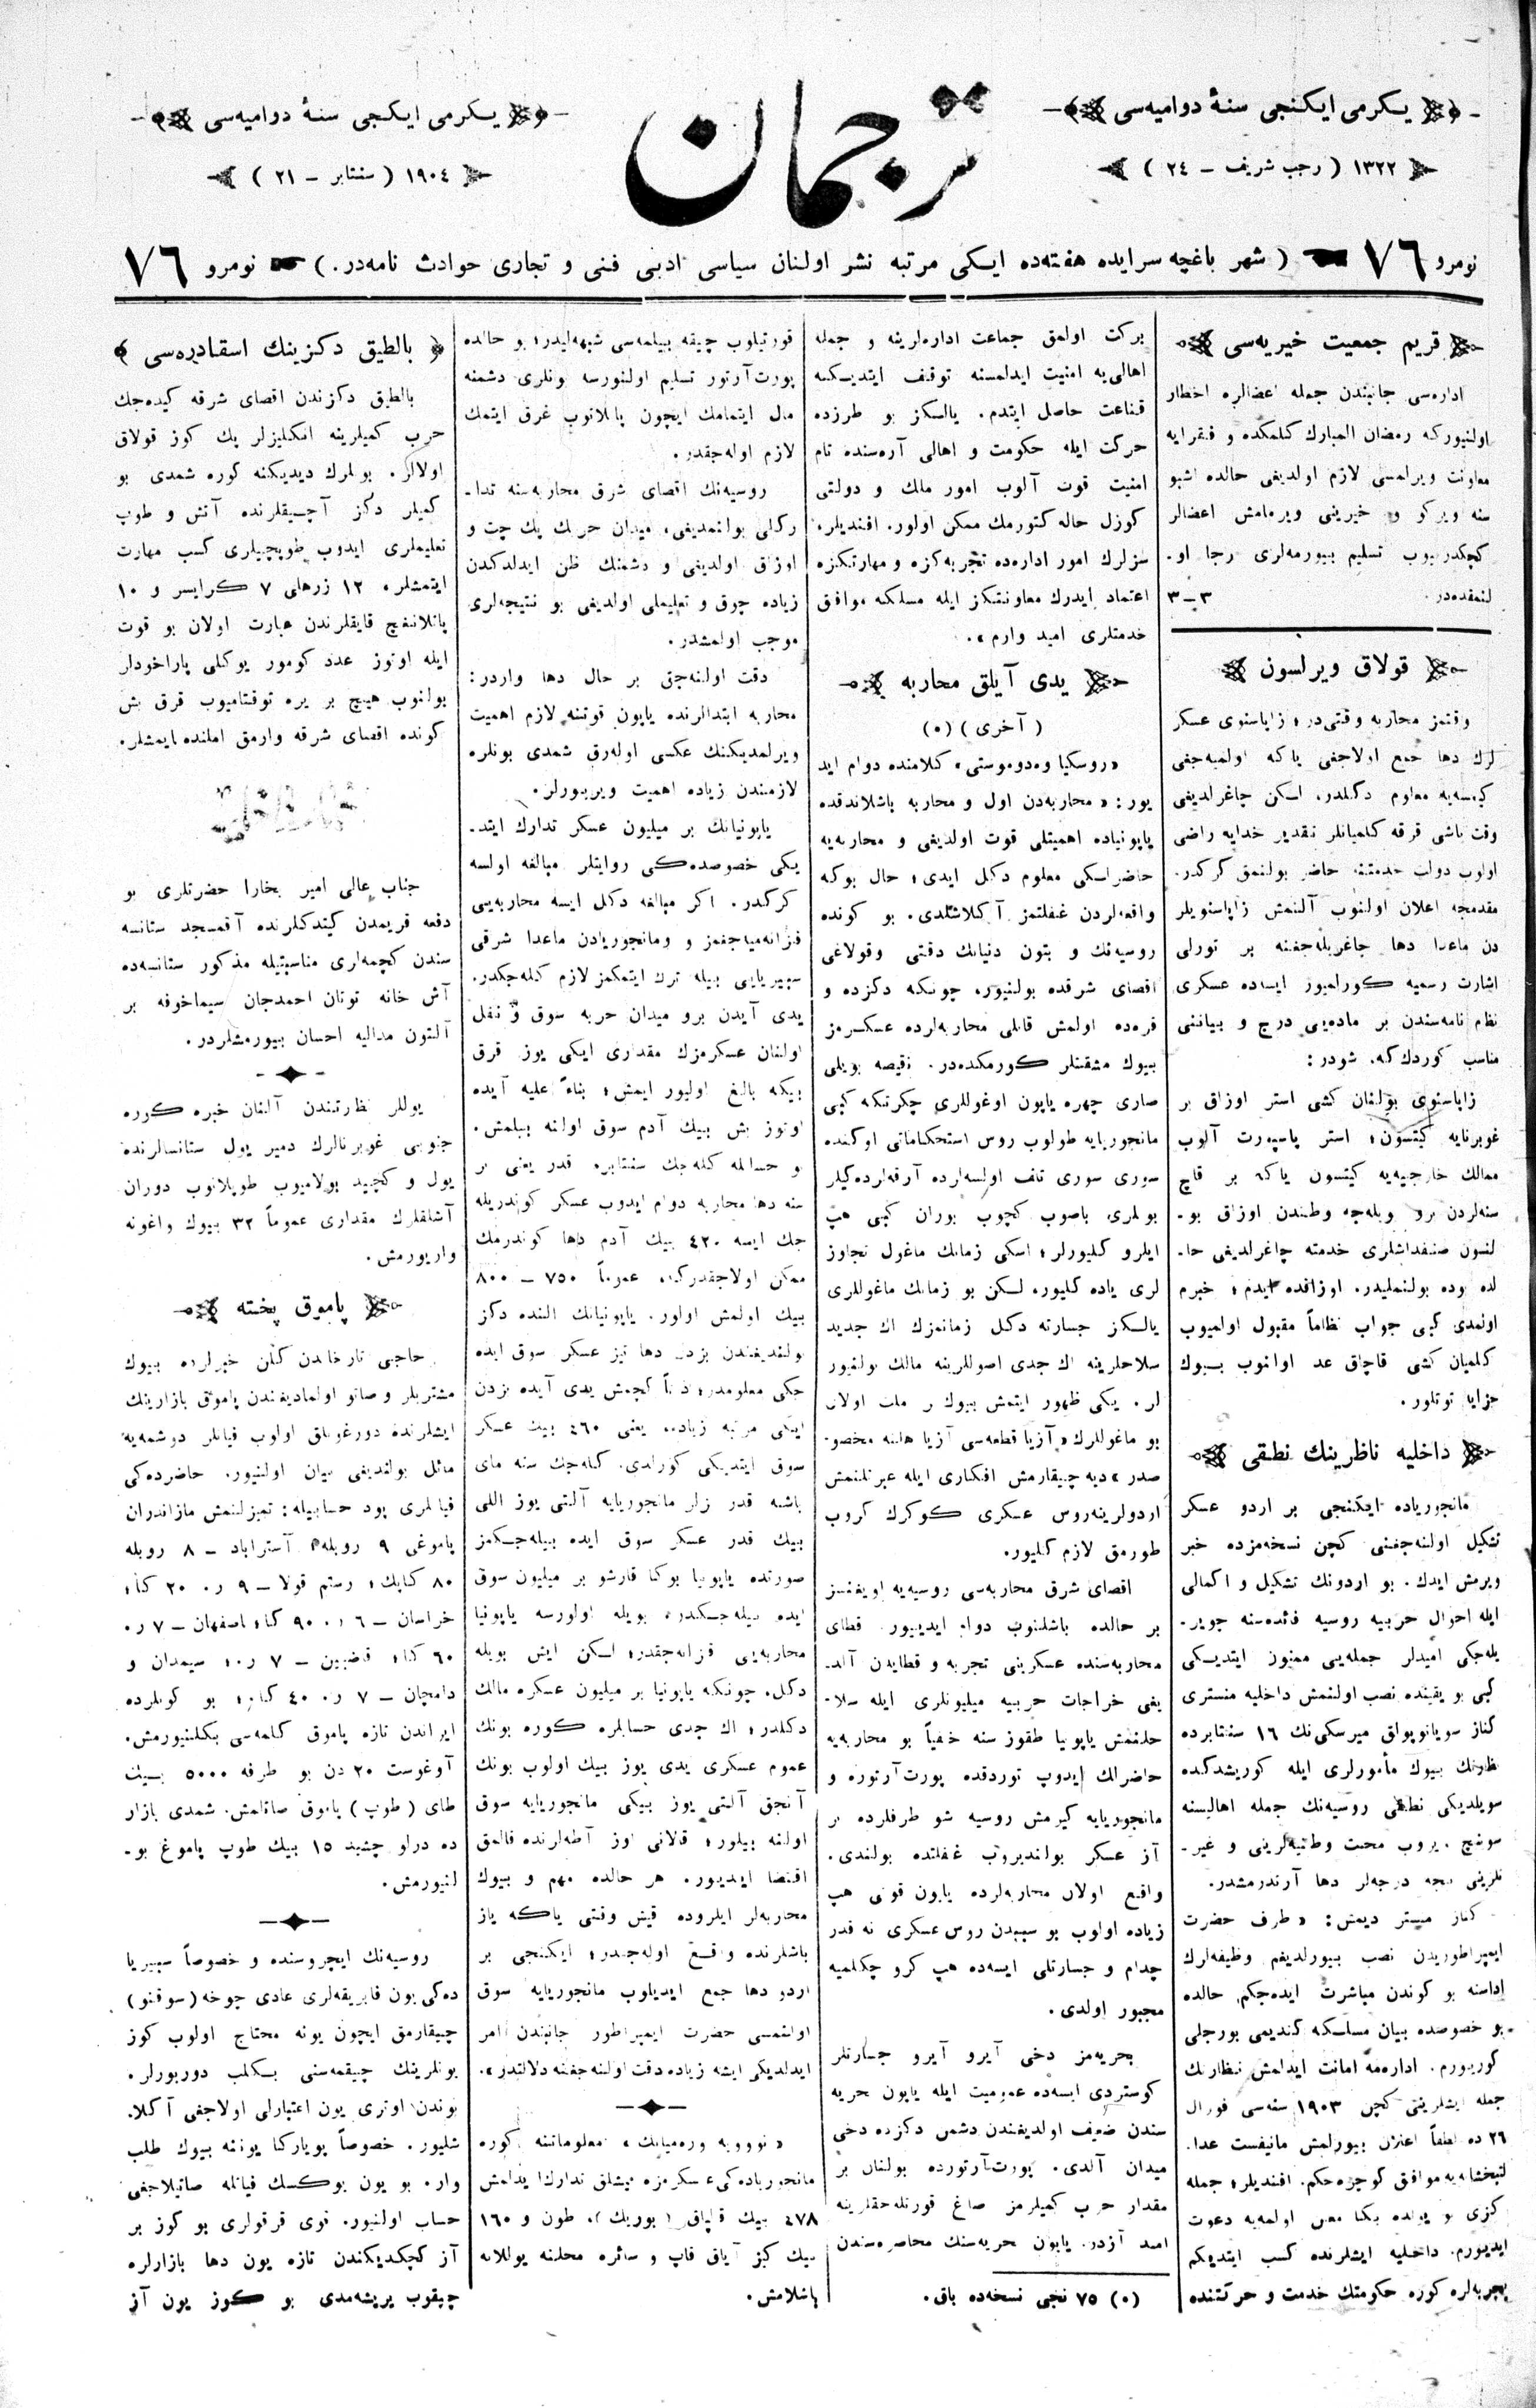 يكرمى ايكنجى سنهٔ دواميه‌سى
١٣٢٢ ( رجب شريف — ٢٤ )
ترجمان
يكرمى ايكنجى سنهٔ دواميه‌سى
١٩٠٤ ( سنتابر — ٢١ )
نومرو ٧٦ ( شهر باغچه سرايده هفته‌ده ايكى مرتبه نشر اولنان سياسى ادبى فنى و تجارى حوادث نامه‌در. ) نومرو ٧٦
قريم جمعيت خيريه‌سى
اداره‌سى جانبندن جمله اعضالره اخطار
اولنيوركه رمضان المبارك كلمكده و فقرايه
معاونت ويرلمسى لازم اولديغى حالده اشبو
سنه ويركو و خيرينى ويرمامش اعضالر
كچكدرميوب تسليم بيورمه‌لرى رجا او-
لنمقده‌در. ٣—٣
قولاق ويرلسون
وقتمز محاربه وقتى‌در؛ زاپاسنوى عسكر
لرك دها جمع اولاجغى ياكه اولميه‌جغى
كيمسه‌يه معلوم دكلدر. لكن چاغرلديغى
وقت باشى قرقه كلميانلر تقدير خدايه راضى
اولوب دولت خدمتنه حاضر بولنمق كركدر.
مقدمجه اعلان اولنوب آلنمش زاپاسنويلر
دن ماعدا دها چاغريله‌جغنه بر تورلى
اشارت رسميه كورلميور ايسه‌ده عسكرى
نظام نامه‌سندن بر ماده‌يى درج و بيانى
مناسب كوردك كه، شودر:
زاپاسنوى بولنان كشى استر اوزاق بر
غوبرنايه كيتسون؛ استر پاسپورت آلوب
ممالك خارجيه‌يه كيتسون ياكه بر قاچ
سنه‌لردن برو ويله‌جه وطندن اوزاق بو-
لنسون صنفداشلرى خدمته چاغرلديغى حا-
لده بوده بولنمليدر. اوزاقده ايدم؛ خبرم
اولمدى كبى جواب نظاماً مقبول اولميوب
كلميان كشى قاچاق عد اولنوب بيوك
جزايا توتلور.
داخليه ناظرينك نطقى
مانجورياده ايكنجى بر اردو عسكر
تشكيل اولنه‌جغنى كچن نسخه‌مزده خبر
ويرمش ايدك. بو اردونك تشكيل و اكمالى
ايله احوال حربيه روسيه فائده‌سنه چوير-
يله‌جكى اميدلر جمله‌يى ممنون ايتديكى
كبى بو يقينده نصب اولنمش داخليه منسترى
كناز سوياتوپولق ميرسكى‌نك ١٦ سنتابرده
نظارتك بيوك مأمورلرى ايله كوريشدكده
سويلديكى نطقى روسيه‌نك جمله اهاليسنه
سونچ ويروب محبت وطنيه‌لرينى و غير-
تلرينى نيجه درجه‌لر دها آرتدرمشدر.
كناز ميستر ديمش: «طرف حضرت
ايمپراطوريدن نصب بيورلديغم وظيفه‌لرك
اداسنه بو كوندن مباشرت ايده‌جكم حالده
بو خصوصده بيان مسلكه كنديمى بورجلى
كوريورم. اداره‌مه امانت ايدلمش نظارتك
جمله ايشلرينى كچن ١٩٠٣ سنه‌سى فورال
٢٦ ده لطفاً اعلان بيورلمش مانيفست عدا-
لتبخشانه‌يه موافق كوچره‌جكم. افنديلر؛ جمله
كزى بو يولده بكا معين اولمه‌يه دعوت
ايديورم. داخليه ايشلرنده كسب ايتديكم
تجربه‌لره كوره حكومتك خدمت و حركتنده
بركت اولمق جماعت اداره‌لرينه و جمله
اهالى‌يه امنيت ايدلمسنه توقيف ايتديكنه
قناعت حاصل ايتدم. يالكز بو طرزده
حركت ايله حكومت و اهالى آره‌سنده تام
امنيت قوت آلوب امور ملك و دولتى
كوزل حاله كتورمك ممكن اولور. افنديلر،
سزلرك امور اداره‌ده تجربه‌كزه و مهارتكزه
اعتماد ايدرك معاونتكز ايله مسلكه موافق
خدمتلرى اميد وارم».
يدى آيلق محاربه
( آخرى ) (٠)
«روسكيا وه‌دوموستى» كلامنده دوام ايد
يور: «محاربه‌دن اول و محاربه باشلاندقده
ياپونياده اهميتلى قوت اولديغى و محاربه‌يه
حاضرلسكى معلوم دكل ايدى؛ حال بوكه
واقعه‌لردن غفلتمز آكلاشلدى. بو كونده
روسيه‌نك و بتون دنيانك دقتى وقولاغى
اقصاى شرقده بولنيور، چونكه دكزده و
قره‌ده اولمش قانلى محاربه‌لرده عسكرمز
بيوك مشقتلر كورمكده‌در. نقيصه بويلى
صارى چهره ياپون اوغوللرى چكرتكه كبى
مانجوريايه طولوب روس استحكاماتى اوكنده
سورى سورى تلف اولسه‌لرده آرقه‌لرده‌كيلر
بونلرى باصوب كچوب بوران كبى هپ
ايلرو كليورلر؛ اسكى زمانك ماغول تجاوز
لرى ياده كليور، لكن بو زمانك ماغوللرى
يالكز جسارته دكل زمانمزك اك جديد
سلاحلرينه اك جدى اصوللرينه مالك بولنيور
لر. يكى ظهور ايتمش بيوك بر ملت اولان
بو ماغوللرك «آزيا قطعه‌سى آزيا هاليسنه مخصو-
صدر» ديه چيقارمش افكارى ايله عبرتلنمش
اردولرينه‌روس عسكرى كوكرك كروب
طورمق لازم كليور.
اقصاى شرق محاربه‌سى روسيه‌يه اويغنسز
بر حالده باشلنوب دوام ايدييور. قطاى
محاربه‌سنده عسكرينى تجربه و قطايدن آلد-
يغى خراجات حربيه ميليونلرى ايله سلا-
حلنمش ياپونيا طقوز سنه خفياً بو محاربه‌يه
حاضرلك ايدوپ توردقده پورت‌آرتوره و
مانجوريايه كيرمش روسيه شو طرفلرده بر
آز عسكر بولنديروب غفلتده بولندى.
واقع اولان محاربه‌لرده ياپون قوتى هپ
زياده اولوب بو سببدن روس عسكرى نه قدر
چدام و جسارتلى ايسه‌ده هپ كرو چكلميه
مجبور اولدى.
بحريه‌مز دخى آيرو آيرو جسارتلر
كوستردى ايسه‌ده عموميت ايله ياپون بحريه
سندن ضعيف اولديغندن دشمن دكزده دخى
ميدان آلدى. پورت‌آرتورده بولنان بر
مقدار حرب كميلرمز صاغ قورتله‌جقلرينه
اميد آزدر. ياپون بحريه‌سنك محاصره‌سندن
(٠) ٧٥ نجى نسخه‌ده باق.
قورتيلوب چيقه بيلمه‌سى شبهه‌ليدر؛ بو حالده
پورت‌آرتور تسليم اولنورسه بونلرى دشمنه
مال ايتمامك ايچون پاتلاتوب غرق ايتمك
لازم اوله‌جقدر.
روسيه‌نك اقصاى شرق محاربه‌سنه تدا-
ركلى بولنمديغى، ميدان حربك پك چت و
اوزاق اولديغى و دشمنك ظن ايدلدكدن
زياده چوق و تعليملى اولديغى بو نتيجه‌لرى
موجب اولمشدر.
دقت اولنه‌جق بر حال دها واردر:
محاربه ابتدالرنده ياپون قوتنه لازم اهميت
ويرلمديكنك عكسى اوله‌رق شمدى بونلره
لازمندن زياده اهميت ويريورلر.
ياپونيانك بر ميليون عسكر تدارك ايتد-
يكى خصوصده‌كى روايتلر مبالغه اولسه
كركدر. اكر مبالغه دكل ايسه محاربه‌يى
قزانه‌ميه‌جغمز و ومانجوريادن ماعدا شرقى
سيبيريايى بيله ترك ايتمكمز لازم كله‌جكدر.
يدى آيدن برو ميدان حربه سوق و نقل
اولنان عسكرمزك مقدارى ايكى يوز قرق
بيكه بالغ اوليور ايمش؛ بناءً عليه آيده
اوتوز بش بيك آدم سوق اولنه بيلمش.
بو حسابله كله‌جك سنتابره قدر يعنى بر
سنه دها محاربه دوام ايدوب عسكر كوندريله
جك ايسه ٤٢٠ بيك آدم دها كوندرمك
ممكن اولاجقدركه، عموماً ٧٥٠ — ٨٠٠
بيك اولمش اولور. ياپونيانك النده دكز
بولنديغندن بزدن دها تيز عسكر سوق ايده
جكى معلومدر؛ كچمش يدى آيده بزدن
ايكى مرتبه زياده يعنى ٤٦٠ بيك عسكر
سوق ايتديكى كورلدى. كله‌جك سنه ماى
باشنه قدر بزلر مانجوريايه آلتى يوز اللى
بيك قدر عسكر سوق ايده بيله‌جكمز
صورتده ياپونيا بوكا قارشو بر ميليون سوق
ايده بيله‌جكدر، بويله اولورسه ياپونيا
محاربه‌يى قزانه‌جقدر؛ لكن ايش بويله
دكل. چونكه ياپونيا بر ميليون عسكره مالك
دكلدر؛ اك جدى حسابلره كوره بونك
عموم عسكرى يدى يوز بيك اولوب بونك
آنجق آلتى يوز بيكى مانجوريايه سوق
اولنه بيلور؛ قالانى اوز آطه‌لرنده قالمق
اقتضا ايديور. هر حالده مهم و بيوك
محاربه‌لر ايلروده قيش وقتى ياكه ياز
باشلرنده واقع اوله‌جقدر؛ ايكنجى بر
اردو دها جمع ايديلوب مانجوريايه سوق
اولنمسى حضرت ايمپراطور جانبندن امر
ايدلديكى ايشه زياده دقت اولنه جغنه دلالتدر».
«نوويه وره‌ميانك» معلوماتنه كوره
مانجورياده‌كى عسكرمزه قيشلق تدارك ايدلمش
٤٧٨ بيك قالپاق (بوريك)، طون و ١٦٠
بيك كيز آياق قاپ و سائره محلنه يوللانه
باشلامش.
بالطيق دكزينك اسقادره‌سى
بالطيق دكزندن اقصاى شرقه كيده‌جك
حرب كميلرينه انكليزلر پك كوز قولاق
اولالر. بونلرك ديديكنه كوره شمدى بو
كميلر دكز آچيقلرنده آتش و طوپ
تعليملرى ايدوب طوپچيلرى كسب مهارت
ايتمشلر. ١٢ زرهلى ٧ كرايسر و ١٠
پاتلانغچ قايقلرندن عبارت اولان بو قوت
ايله اوتوز عدد كومور يوكلى پاراخودلر
بولنوب هيچ بر يره توقتاميوب قرق بش
كونده اقصاى شرقه وارمق املنده ايمشلر.
جناب عالى امير بخارا حضرتلرى بو
دفعه قريمدن كيتدكلرنده آقمسجد ستانسه
سندن كچمه‌لرى مناسبتيله مذكور ستانسه‌ده
آش خانه توتان احمدجان سيماخوفه بر
آلتون مداليه احسان بيورمشلردر.
يوللر نظارتندن آلنان خبره كوره
جنوبى غوبرنالرك دمير يول ستانسالرنده
يول و كچيد بولاميوب طوپلانوب دوران
آشلقلرك مقدارى عموماً ٣٢ بيوك واغونه
واريورمش.
پاموق پخته
حاجى تارخاندن كلن خبرلرده بيوك
مشتريلر و صاتو اولماديغندن پاموق بازارينك
ايشلرنده دورغونلق اولوب فياتلر دوشمه‌يه
مائل بولنديغى بيان اولنيور. حاضرده‌كى
فياتلرى پود حسابيله: تميزلنمش مازاندران
پاموغى ٩ روبله، آستراباد — ٨ روبله
٨٠ كاپك؛ رستم قولا — ٩ ر. ٢٠ كا؛
خراسان — ٦ ر. ٩٠ كا؛ اصفهان — ٧ ر.
٦٠ كا؛ قضبين — ٧ ر.؛ سيمدان و
دامجان — ٧ ر. ٤٠ كا؛ بو كونلرده
ايراندن تازه پاموق كلمه‌سى بكلنيورمش.
آوغوست ٢٠ دن بو طرفه ٥٠٠٠ بيك
طاى (طوپ) پاموق صاتلمش. شمدى بازار
ده درلو چشيد ١٥ بيك طوپ پاموغ بو-
لنيورمش.
روسيه‌نك ايچروسنده و خصوصاً سيبيريا
ده‌كى يون فابريقه‌لرى عادى چوخه (سوقنو)
چيقارمق ايچون يونه محتاج اولوب كوز
يونلرينك چيقمه‌سنى بكلب دوريورلر.
بوندن اوترى يون اعتبارلى اولاجغى آكلا-
شليور. خصوصاً يوياركا يوننه بيوك طلب
وار. بو يون يوكسك فياتله صاتيلاجغى
حساب اولنيور. قوى قرقولرى بو كوز بر
آز كچكديكندن تازه يون دها بازارلره
چيقوب يريشه‌مدى بو كوز يون آز